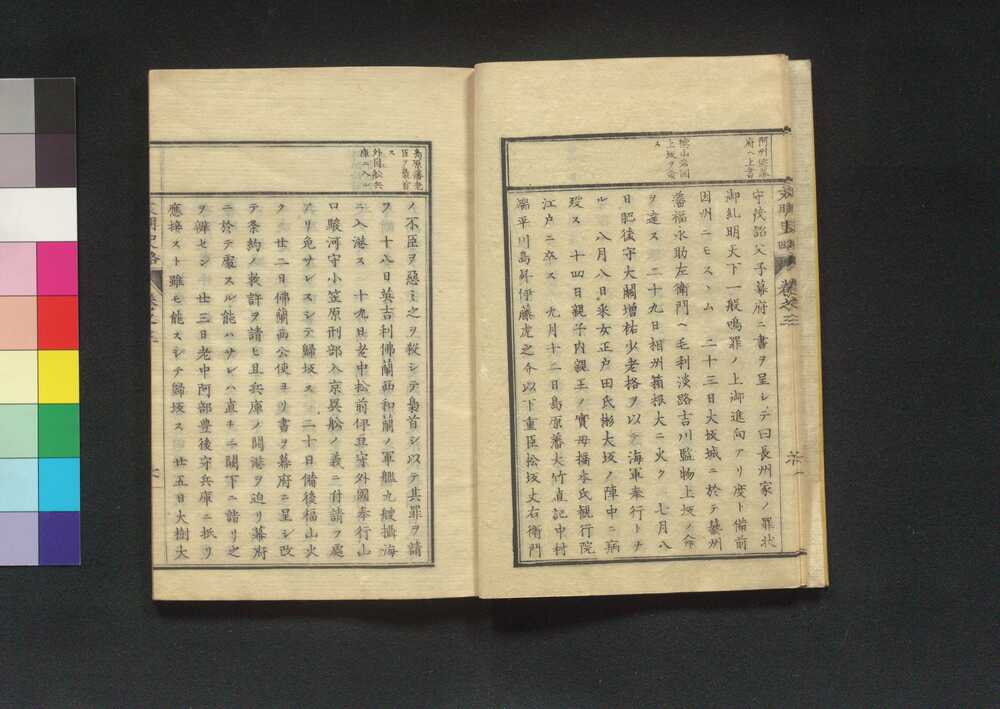 阿州徳藩
府ヘ上書
徳山岩國
上坂ヲ命
ス
守茂韶父子幕府ニ書ヲ呈シテ曰長州家ノ罪状
御糺明天下一般鳴罪ノ上御進向アリ度ト備前
因州ニモスヽム 二十三日大坂城ニ於テ藝州
藩福永助左衛門ヘ毛利淡路吉川監物上坂ノ命
ヲ達ス 二十九日相州箱根大ニ火ク 七月八
日肥後守大關増祐少老格ヲ以テ海軍奉行トナ
ル 八月八日采女正戸田氏彬大坂ノ陣中ニ病
歿ス 十四日親子内親王ノ實母橋本氏観行院
江戸ニ卒ス 九月十二日島原藩大竹貞記中村
端平川島昇伊藤虎之介以下重臣松坂丈右衛門
巻之三
島原藩老
臣ヲ梟首
ス
外國舩兵
庫ニ入ル
ノ不臣ヲ惡ミ之ヲ殺シテ梟首シ以テ其罪ヲ請
フ 十八日英吉利佛蘭西和蘭ノ軍艦九艘攝海
ニ入港ス 十九日老中松前伊豆守外國奉行山
口駿河守小笠原刑部入京異舩ノ義ニ付請フ處
アリ免サレスシテ歸坂ス 二十日備後福山火
ク 廿二日佛蘭西公使ヨリ書ヲ幕府ニ呈シ改
テ条約ノ敕許ヲ請ヒ且兵庫ノ開港ヲ迫リ幕府
ニ於テ處スル能ハサレハ直キニ闕下ニ詣リ之
ヲ辨セン 廿三日老中阿部豊後守兵庫ニ抵リ
應接スト雖モ能スシテ歸坂ス 廿五日大樹大